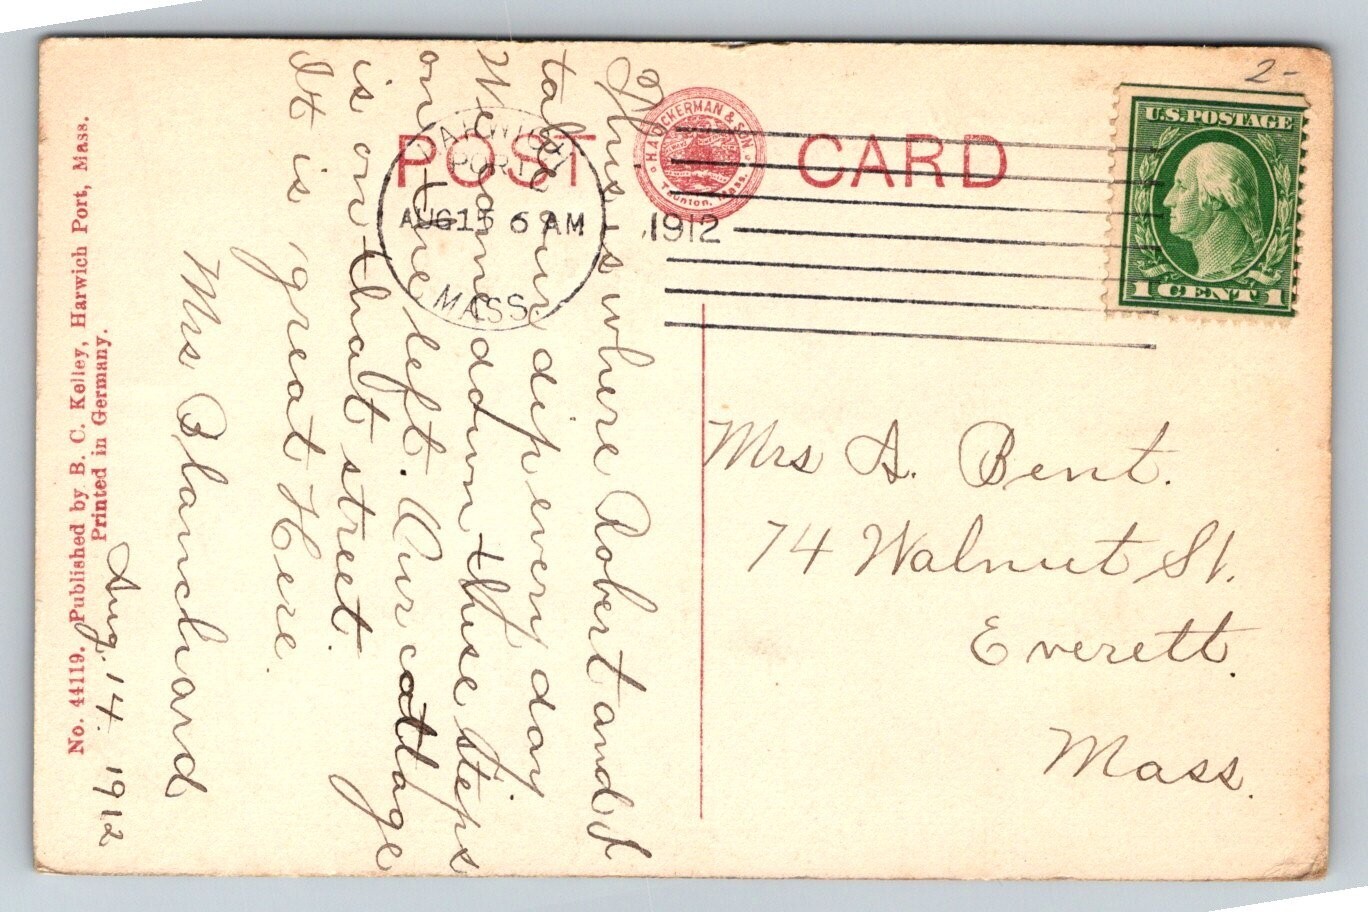 2-
POST CARD
H.A. DICKERMAN & SON
Taunton, Mass.
U.S. POSTAGE
1 CENT 1
HARWICH
PORT
AUG 15 6 AM
1912
MASS.
This is where Robert and I
take our dip every day
We came down these steps
on the left. Our cottage
is on that street.
It is great Here.
Mrs Blanchard
Aug. 14 1912
Mrs A. Bent.
74 Walnut St.
Everett.
Mass.
No. 44119. Published by B. C. Kelley, Harwich Port, Mass.
Printed in Germany.